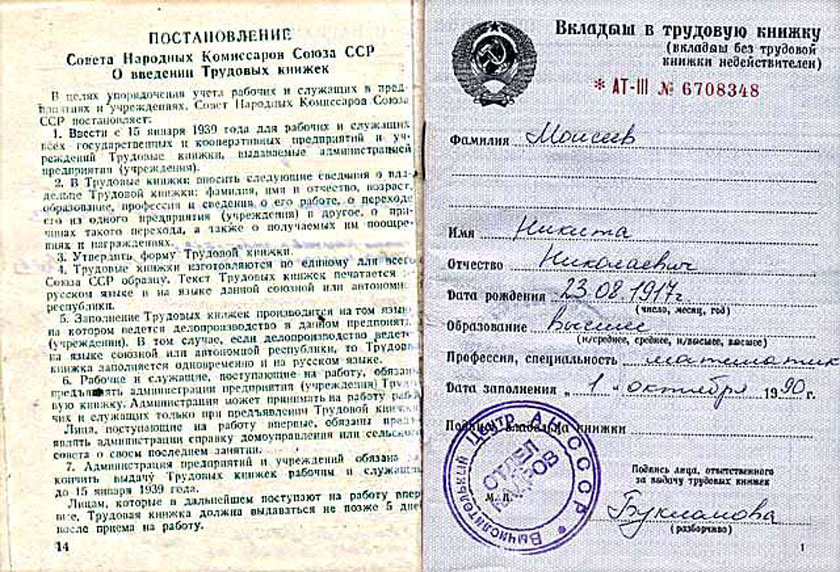 ПОСТАНОВЛЕНИЕ
Совета Народных Комиссаров Союза ССР
О введении Трудовых книжек
В целях упорядочения учета рабочих и служащих в пред-
приятиях и учреждениях, Совет Народных Комиссаров Союза
ССР постановляет:
1. Ввести с 15 января 1939 года для рабочих и служащих
всех государственных и кооперативных предприятий и уч-
реждений Трудовые книжки, выдаваемые администрацией
предприятия (учреждения).
2. В Трудовые книжки вносить следующие сведения о вла-
дельце Трудовой книжки: фамилия, имя и отчество, возраст,
образование, профессия и сведения о его работе, о переходе
его из одного предприятия (учреждения) в другое, о при-
чинах такого перехода, а также о получаемых им поощре-
ниях и награждениях.
3. Утвердить форму Трудовой книжки.
4. Трудовые книжки изготовляются по единому для всего
Союза ССР образцу. Текст Трудовых книжек печатается
русском языке и на языке данной союзной или автоном
республики.
5. Заполнение Трудовых книжек производится на том язык
на котором ведется делопроизводство в данном предприяти
(учреждении). В том случае, если делопроизводство ведетс
на языке союзной или автономной республики, то Трудов
книжка заполняется одновременно и на русском языке.
6. Рабочие и служащие, поступающие на работу, обязан
предъявлять администрации предприятия (учреждения) Трудо
вую книжку. Администрация может принимать на работу рабо
чих и служащих только при предъявлении Трудовой книжки
Лица, поступающие на работу впервые, обязаны предъ
являть администрации справку домоуправления или сельског
совета о своем последнем занятии.
7. Администрация предприятий и учреждений обязана за
кончить выдачу Трудовых книжек рабочим и служащим
до 15 января 1939 года.
Лицам, которые в дальнейшем поступают на работу впер
вые, Трудовая книжка должна выдаваться не позже 5 дне
после приема на работу.
14
Вкладыш в трудовую книжку
(вкладыш без трудовой
книжки недействителен)
* АТ-III № 6708348
Фамилия Моисеев
Имя Никита
Отчество Николаевич
Дата рождения 23.08.1917г
(число, месяц, год)
Образование высшее
(н/среднее, среднее, н/высшее, высшее)
Профессия, специальность математик
Дата заполнения „1" октября 1990г.
Подпись владельца книжки
Вычислительный Центр АН СССР *
ОТДЕЛ
КАДРОВ
М. П.
Подпись лица, ответственного
за выдачу трудовых книжек
(разборчиво)
1